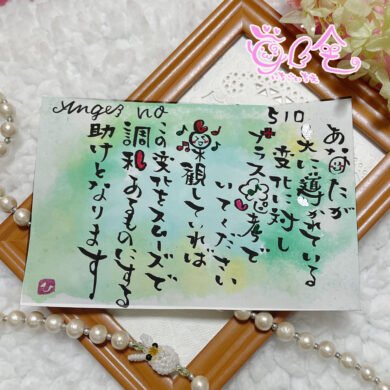 Angel no
510
あなたが
天に導かれている
変化に対し
プラス思考で
いてください
楽観していれば
この変化をスムーズで
調和あるものにする
助けとなります